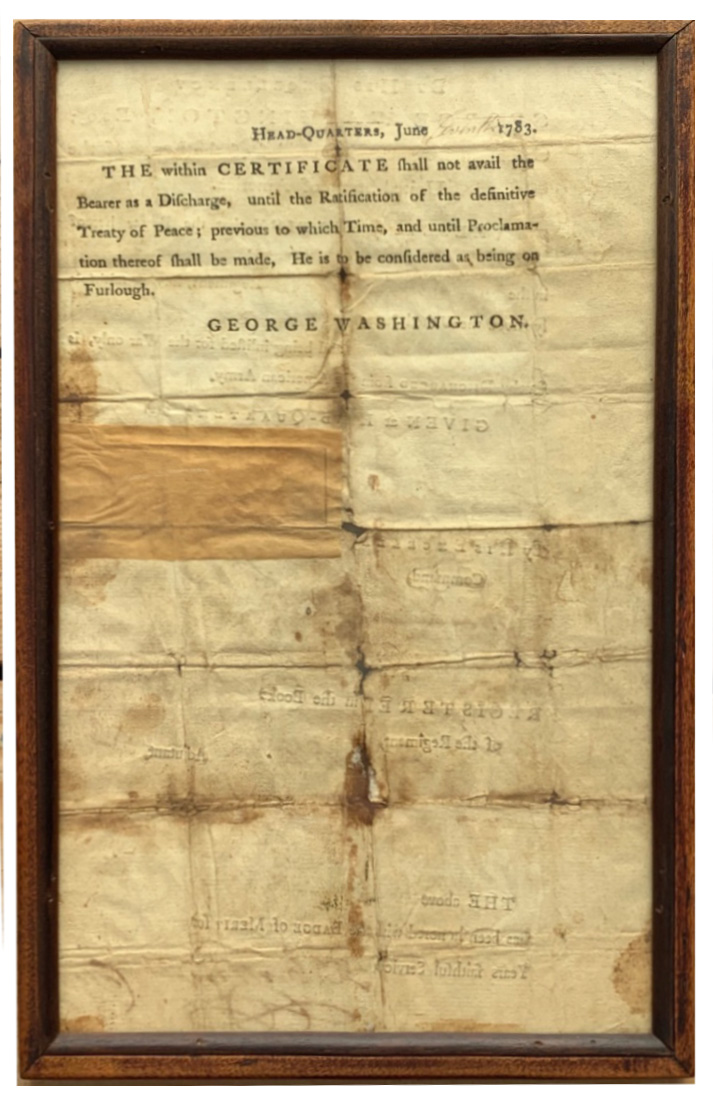 HEAD-QUARTERS, June 1783.
THE within CERTIFICATE ſhall not avail the
Bearer as a Diſcharge, until the Ratification of the definitive
Treaty of Peace; previous to which Time, and until Proclama-
tion thereof ſhall be made, He is to be conſidered as being on
Furlough.
GEORGE WASHINGTON.
being inliſted for the War only, is
American Army.
GIVEN at HEAD-QUARTERS
REGISTERED in the Books
of the Regiment,
Adjutant
THE above
has been honored with the BADGE of MERIT for
Years faithful Service